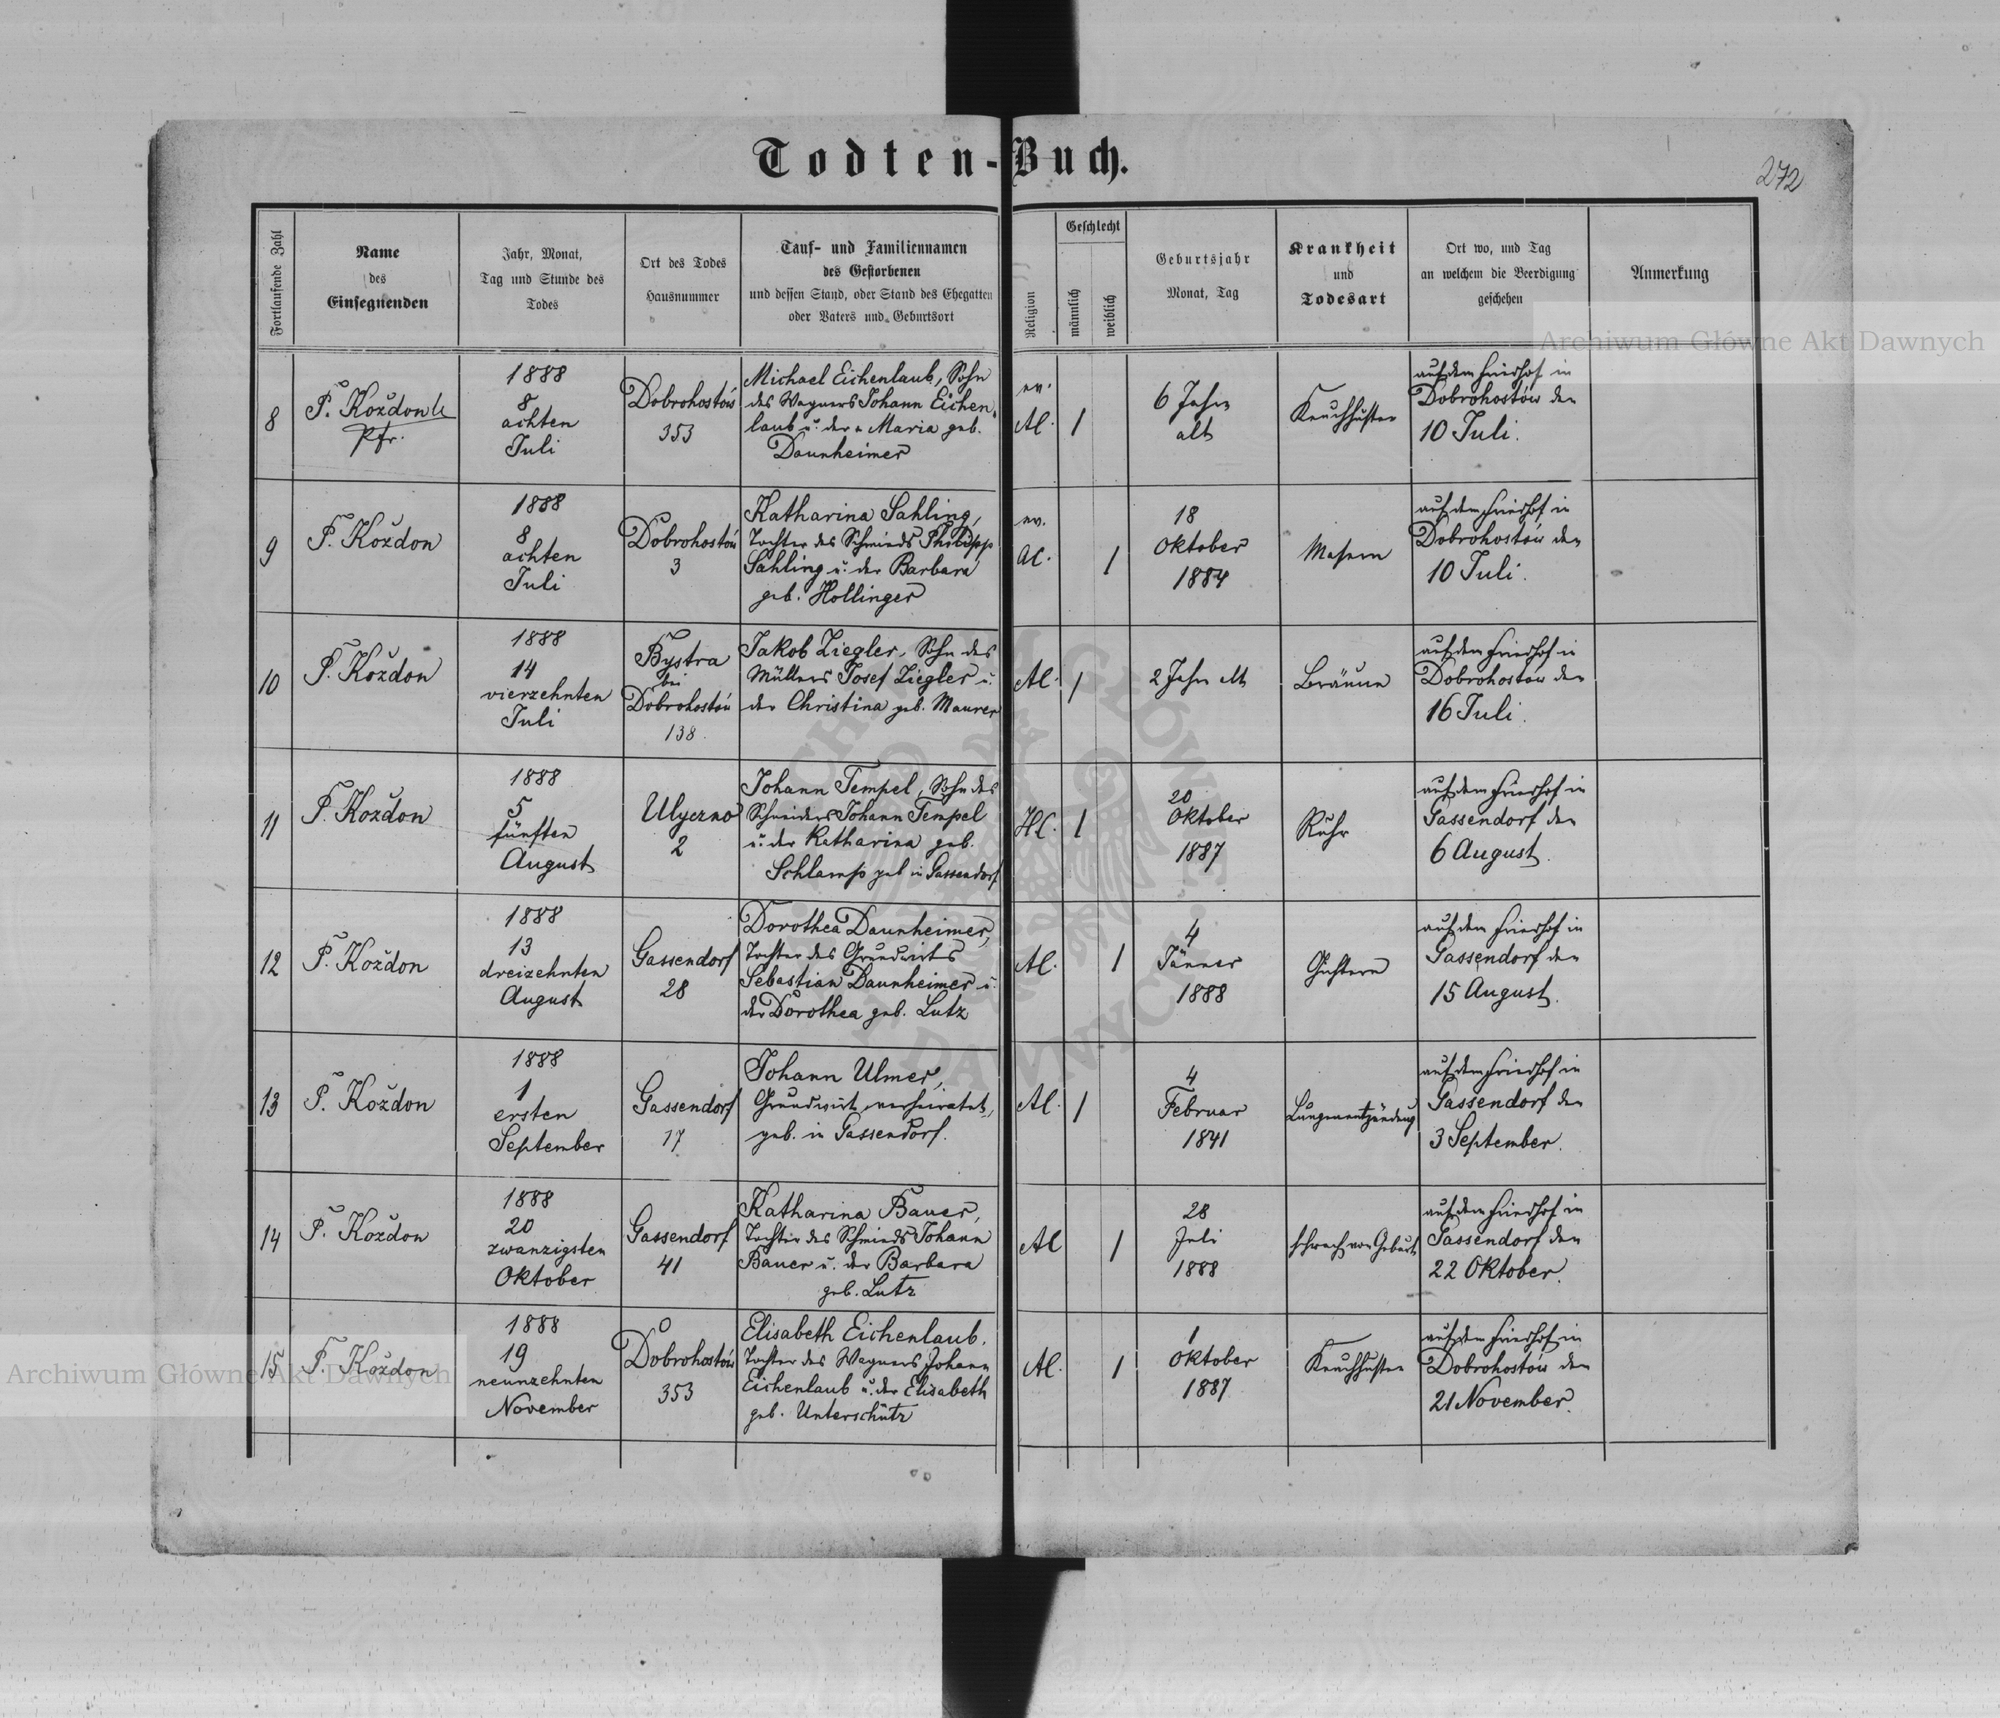 Todten-Buch.
272
Fortlaufende Zahl
Name
des
Einsegnenden
Jahr, Monat,
Tag und Stunde des
Todes
Ort des Todes
Hausnummer
Tauf- und Familiennamen
des Gestorbenen
und dessen Stand, oder Stand des Ehegatten
oder Vaters und Geburtsort
Religion
Geschlecht
männlich
weiblich
Geburtsjahr
Monat, Tag
Krankheit
und
Todesart
Ort wo, und Tag
an welchem die Beerdigung
geschehen
Anmerkung
Archiwum Główne Akt Dawnych
8
P. Kożdon
Pfr.
1888
8
achten
Juli
Dobrohostów
353
Michael Eichenlaub, Sohn
des Wagners Johann Eichen-
laub u. der Maria geb.
Daunheimer
ev.
AC.
1
6 Jahre
alt
Keuchhusten
auf dem Friedhof in
Dobrohostów den
10 Juli.
9
P. Kożdon
1888
8
achten
Juli
Dobrohostów
3
Katharina Sahling,
Tochter des Schmieds Philipp
Sahling u. der Barbara
geb. Hollinger
ev.
AC.
1
18
Oktober
1884
Masern
auf dem Friedhof in
Dobrohostów den
10 Juli.
10
P. Kożdon
1888
14
vierzehnten
Juli
Bystra
bei
Dobrohostów
138
Jakob Ziegler, Sohn des
Müllers Josef Ziegler u.
der Christina geb. Maurer
AC.
1
2 Jahre alt
Bräune
auf dem Friedhof in
Dobrohostów den
16 Juli.
11
P. Kożdon
1888
5
fünften
August
Ulyczno
2
Johann Tempel, Sohn des
Schneiders Johann Tempel
u. der Katharina geb.
Schlamp geb in Gassendorf
HC.
1
20
Oktober
1887
Ruhr
auf dem Friedhof in
Gassendorf den
6 August.
12
P. Kożdon
1888
13
dreizehnten
August
Gassendorf
28
Dorothea Daunheimer,
Tochter des Grundwirts
Sebastian Daunheimer u.
der Dorothea geb. Lutz
AC.
1
4
Jänner
1888
Gichtern
auf dem Friedhof in
Gassendorf den
15 August.
13
P. Kożdon
1888
1
ersten
September
Gassendorf
17
Johann Ulmer,
Grundwirt, verheiratet,
geb. in Gassendorf.
AC.
1
4
Februar
1841
Lungenentzündung
auf dem Friedhof in
Gassendorf den
3 September.
14
P. Kożdon
1888
20
zwanzigsten
Oktober
Gassendorf
41
Katharina Bauer,
Tochter des Schmieds Johann
Bauer u. der Barbara
geb. Lutz
AC
1
28
Juli
1888
schwach von Geburt
auf dem Friedhof in
Gassendorf den
22 Oktober.
15
P. Kożdon
1888
19
neunzehnten
November
Dobrohostów
353
Elisabeth Eichenlaub,
Tochter des Wagners Johann
Eichenlaub u. der Elisabeth
geb. Unterschütz
AC.
1
1
Oktober
1887
Keuchhusten
auf dem Friedhof in
Dobrohostów den
21 November.
Archiwum Główne Akt Dawnych